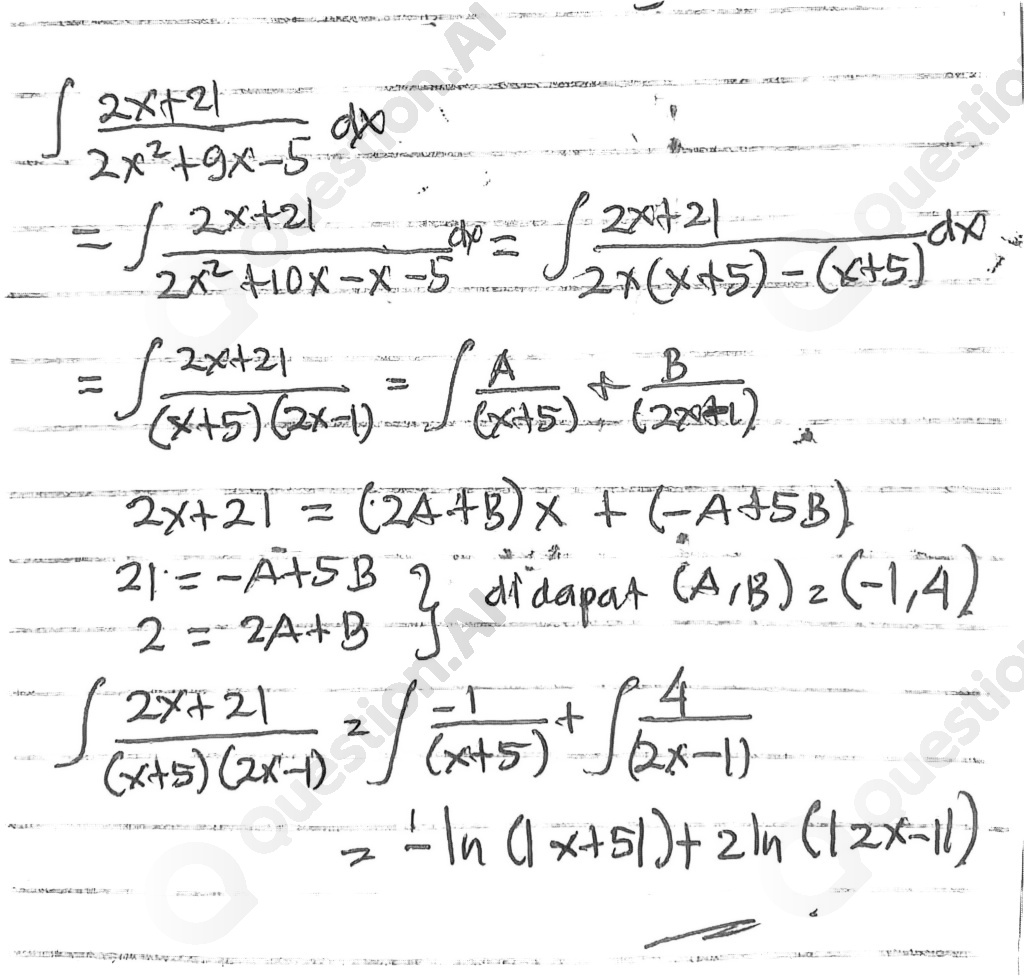 ∫ (2x+21)/(2x²+9x-5) dx
= ∫ (2x+21)/(2x²+10x-x-5) dx = ∫ (2x+21)/(2x(x+5)-(x+5)) dx
= ∫ (2x+21)/((x+5)(2x-1)) = ∫ A/(x+5) + B/(2x-1)
2x+21 = (2A+B)x + (-A+5B)
21 = -A+5B
2 = 2A+B } didapat (A,B) = (-1,4)
∫ (2x+21)/((x+5)(2x-1)) = ∫ -1/(x+5) + ∫ 4/(2x-1)
= -ln(|x+5|)+2ln(|2x-1|)
Question.AI
Question.AI
Question.AI
Question.AI